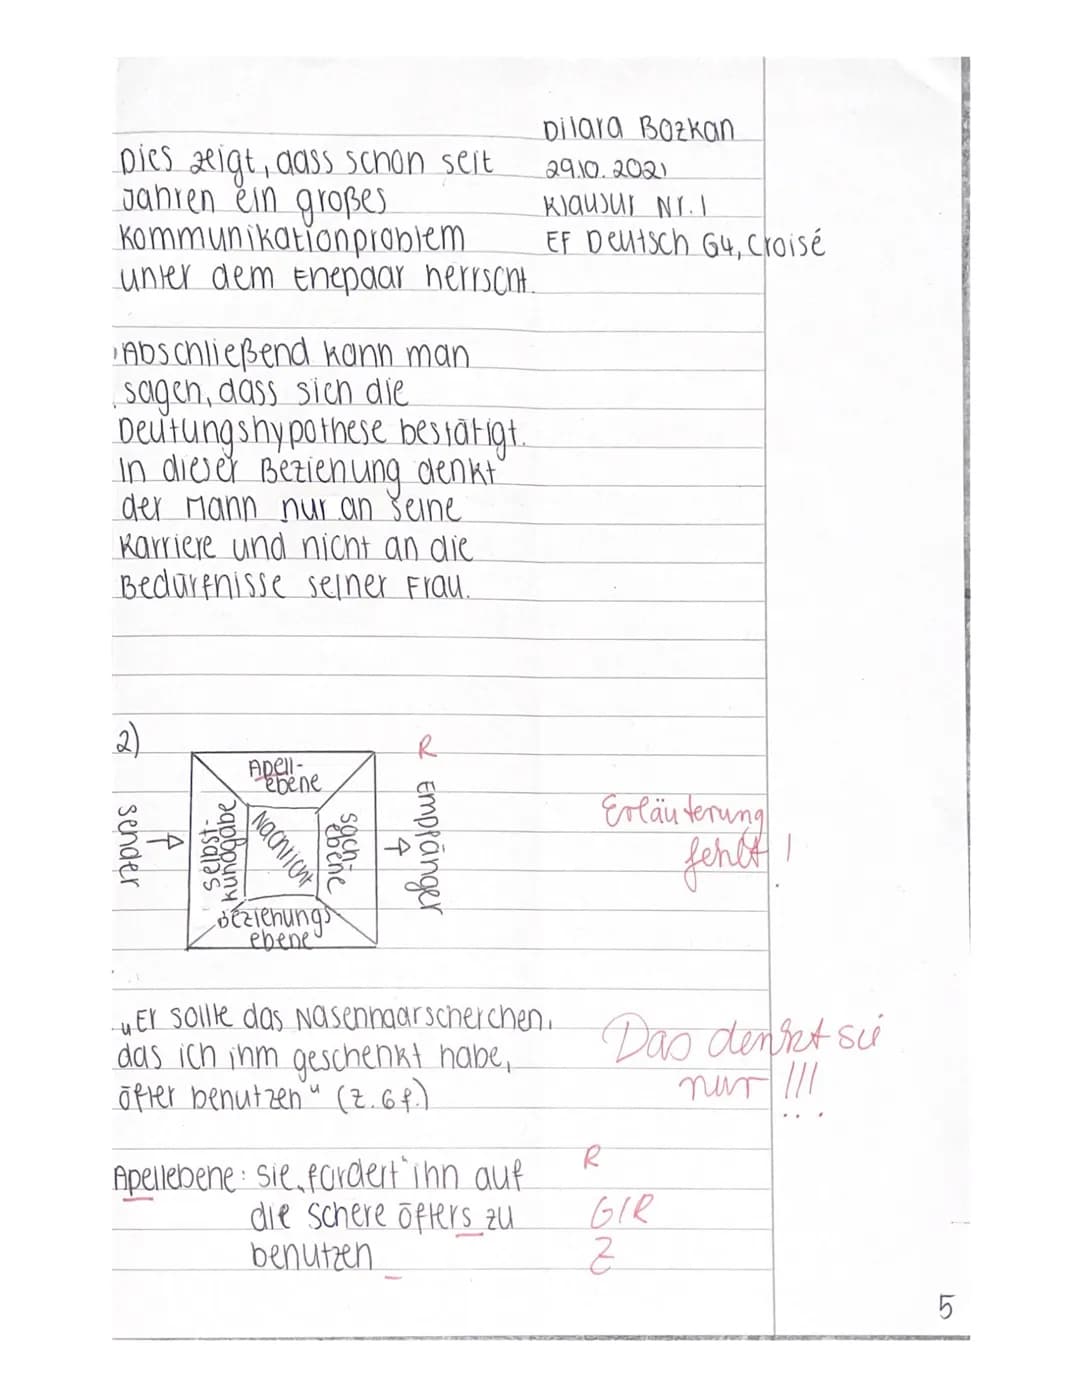 Dilara Bozkan
29.10.2021
Klausur Nr. 1
EF Deutsch G4, Croisé
Dies zeigt, dass schon seit
Jahren ein großes
Kommunikationproblem
unter dem Ehepaar herrscht.
Abschließend kann man
sagen, dass sich die
Deutungshypothese bestätigt.
In dieser Beziehung denkt
der Mann nur an seine
Karriere und nicht an die
Bedürfnisse seiner Frau.
2)
Sender
Apell-
ebene
Selbst-
kundgabe
Nachricht
Sach-
ebene
Beziehungs
ebene
Empfänger
R
Erläuterung
fehlt!
„Er sollte das Nasenhaarscherchen,
das ich ihm geschenkt habe,
öfter benutzen“ (Z. 6 f.)
Das denkt sie
nur!!!
Apellebene: Sie fordert ihn auf
die Schere öfters zu
benutzen
R
G/R
Z
5